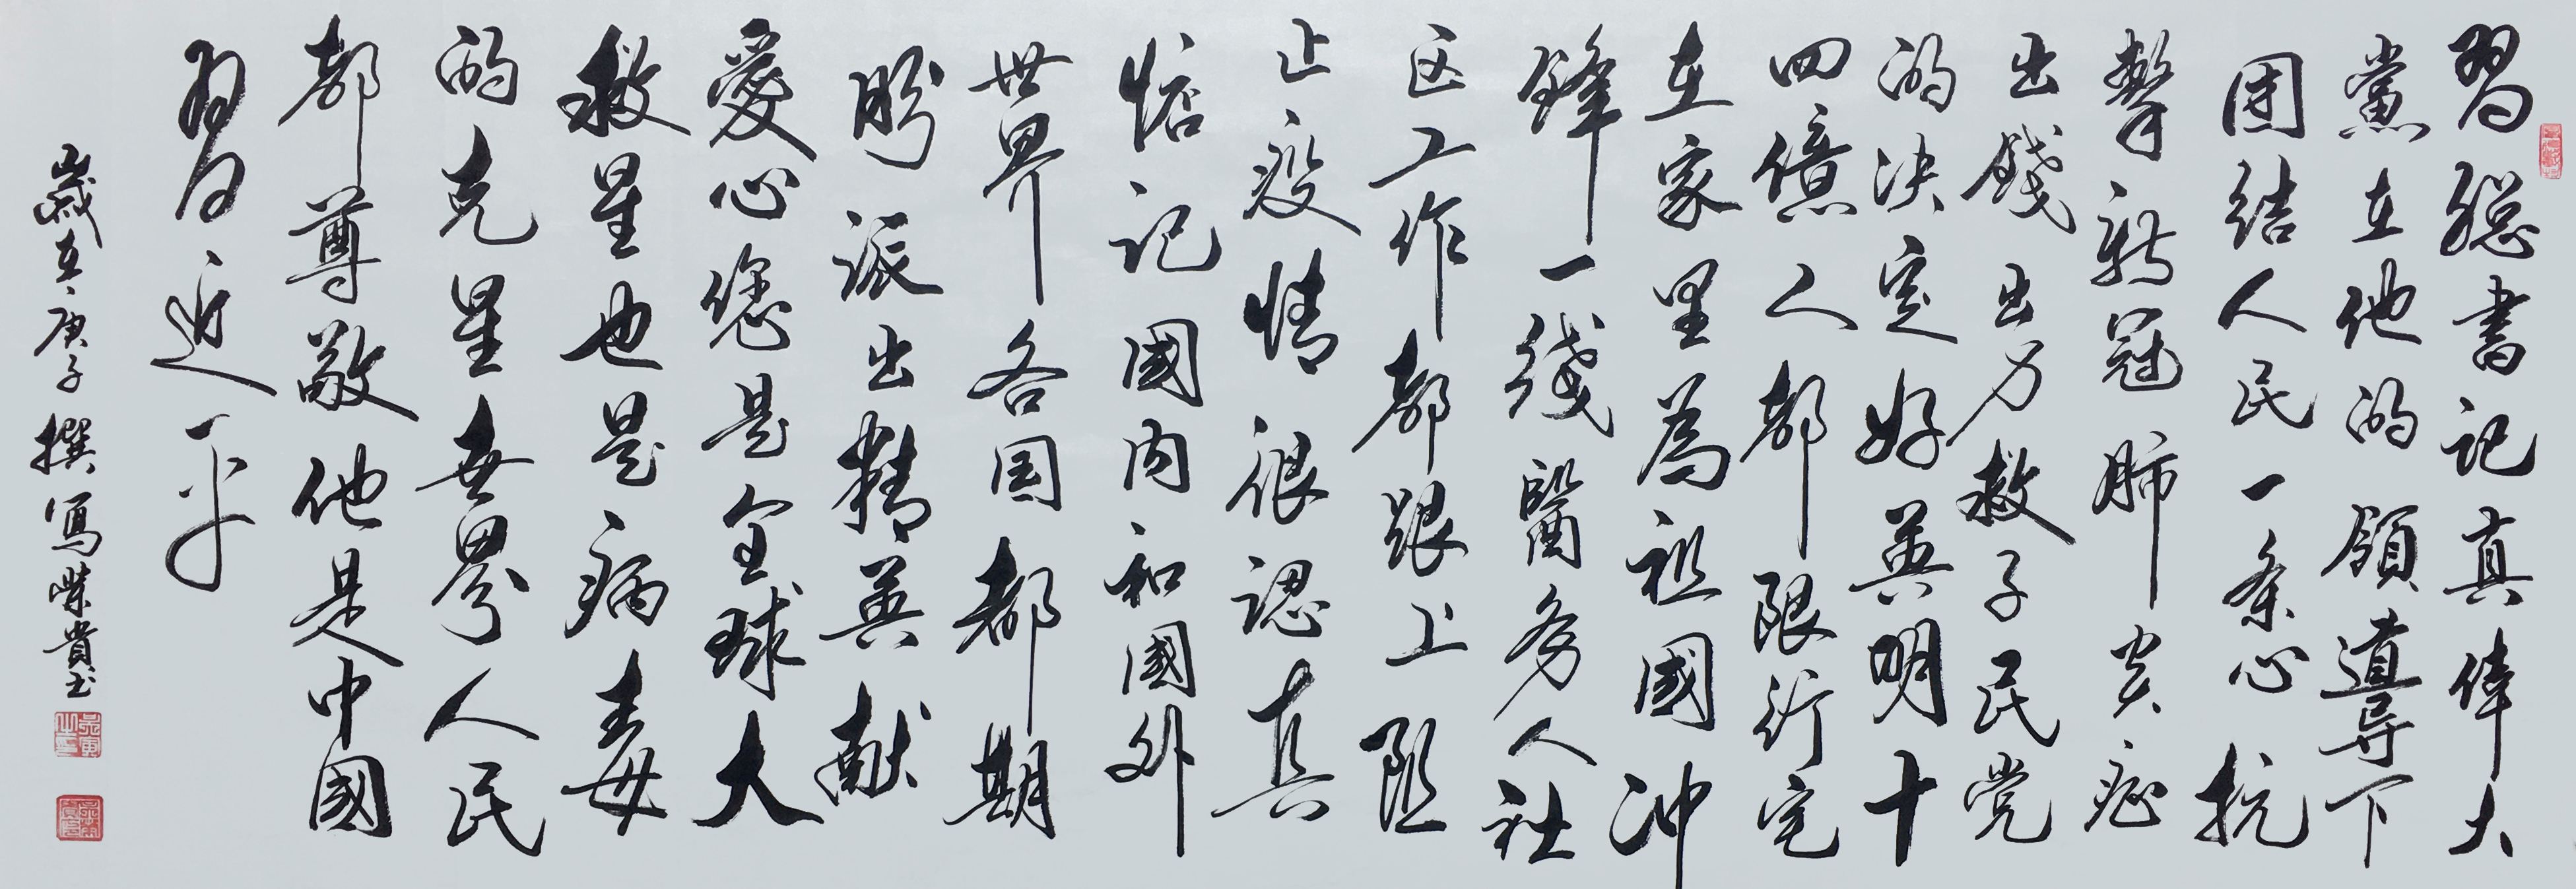 習總書記真偉大
黨在他的領導下
團结人民一条心抗
擊新冠肺炎疫
出錢出力救子民党
的决定好英明十
四億人都限行宅
在家里為祖國冲
鋒一綫醫务人社
区工作都跟上阻
止疫情很認真
惦记國内和國外
世界各国都期
盼派出精英献
愛心您是全球大
救星也是病毒
的克星世界人民
都尊敬他是中國
習近平
歲在庚子撰寫 貴书